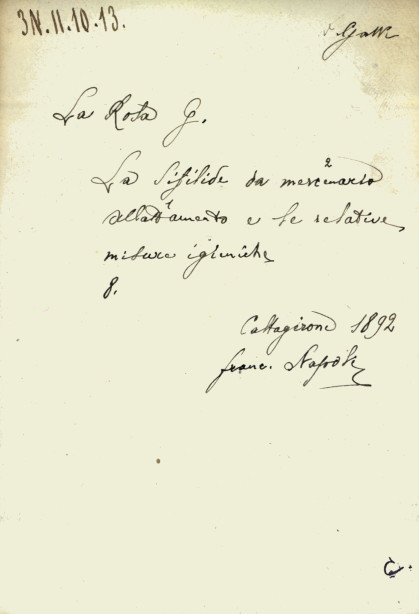 3N.II.10.13.
La Rosa G.
La Sifilide da mercenario 2
allattamento 1 e le relative
misure igieniche
8.
Caltagirone 1892
franc. Napoli